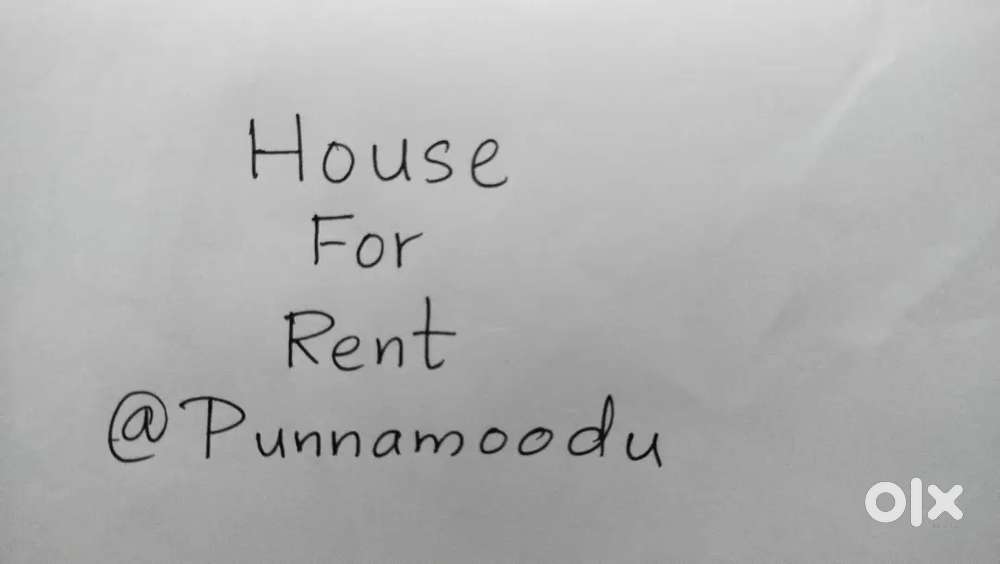 House
For
Rent
@Punnamoodu
olx